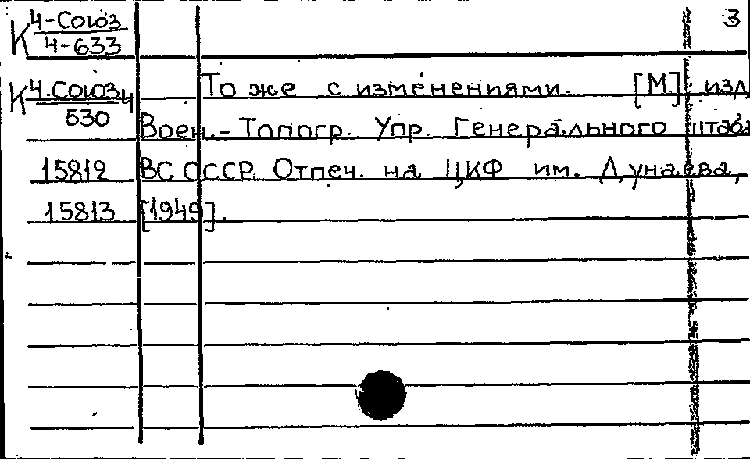 3
К 4-Союз
4-633
К 4.Союз4 То же с изменениями. [М] изд
530 Воен.-Топогр. Упр. Генерального штаба
15812 ВС СССР. Отпеч. на ЦКФ им. Дунаева,
15813 [1949].